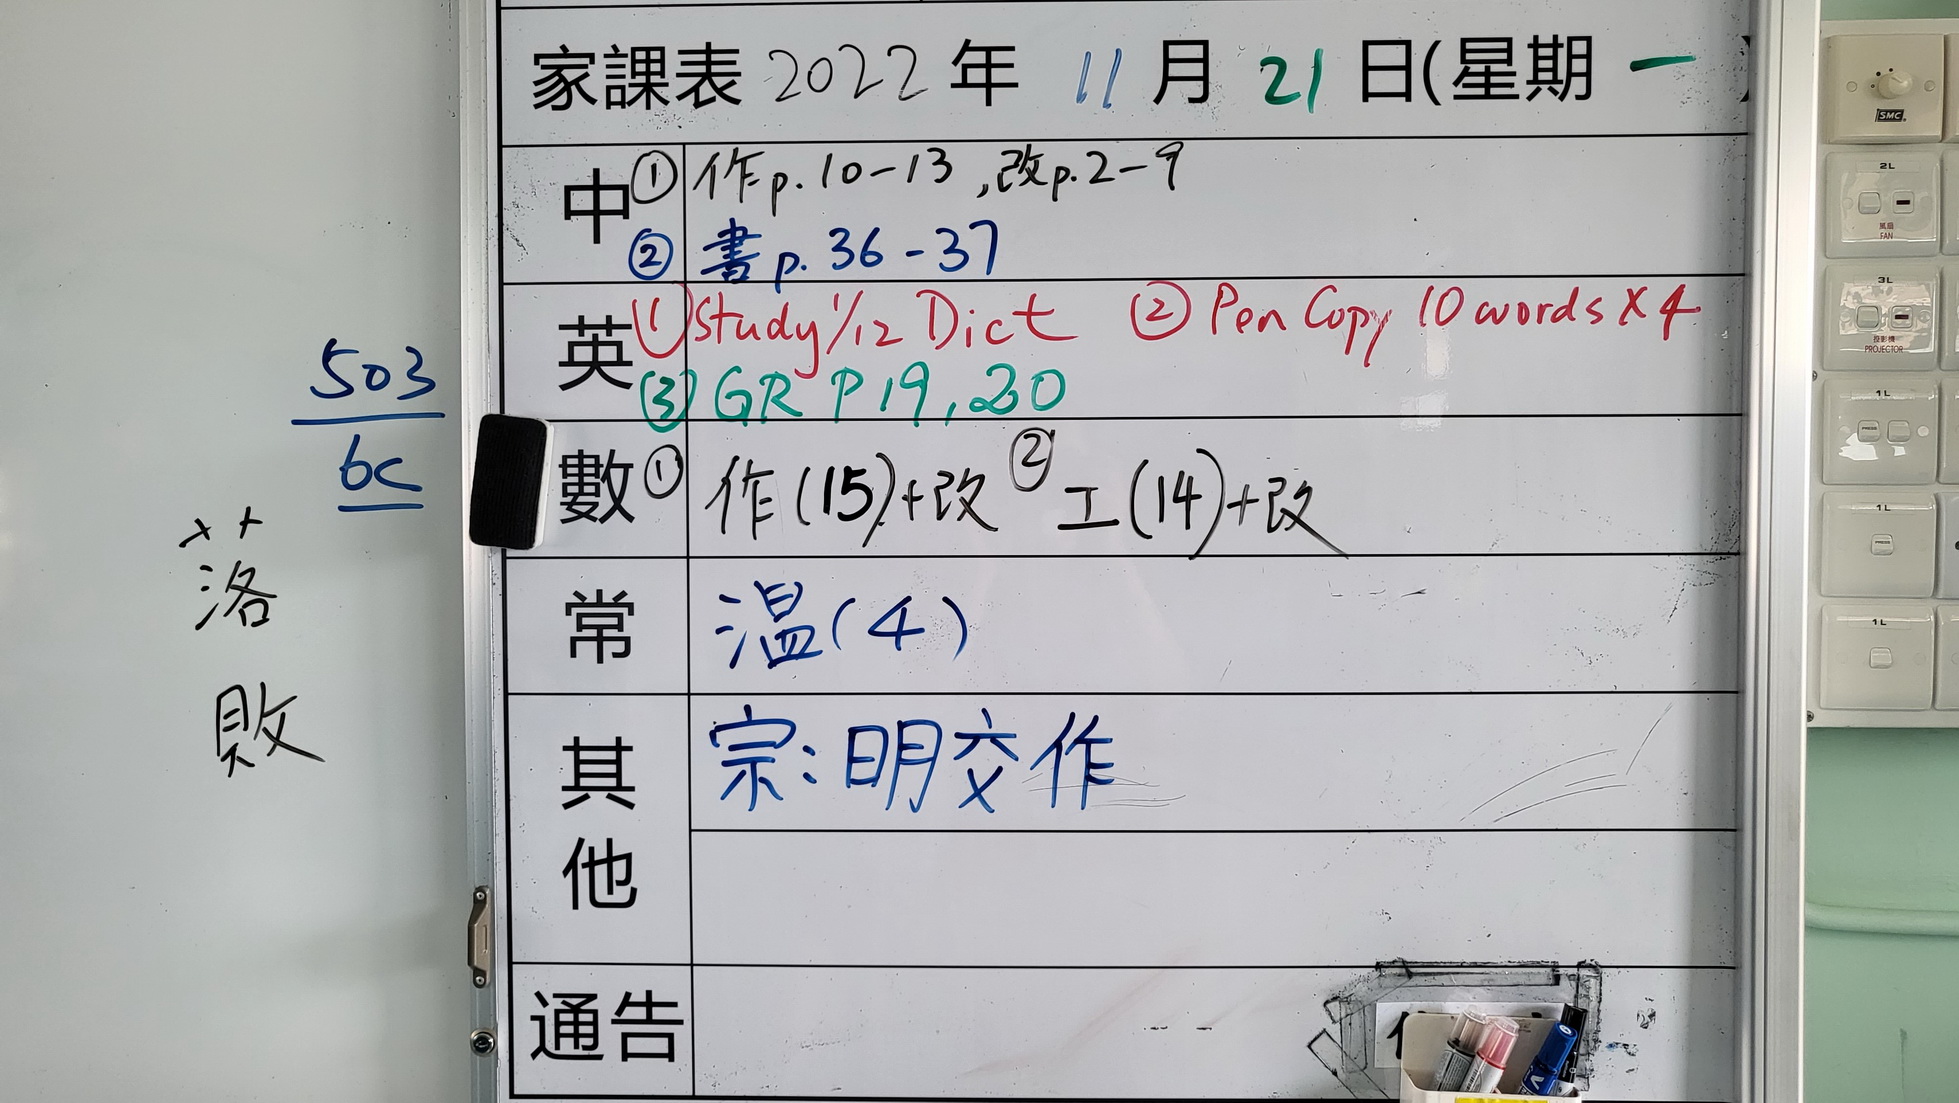 家課表 2022 年 11 月 21 日(星期 一 )
中 ① 作 p. 10-13 , 改 p. 2-9
② 書 p. 36-37
英 (1) Study 1/12 Dict ② Pen Copy 10 words X 4
(3) GR P 19, 20
數 ① 作 (15)+改 ② 工 (14)+改
常 温 (4)
其他 宗: 明交作
通告
503
6C
落
敗
SMC
2L
風扇
FAN
3L
投影機
PROJECTOR
1L
PRESS
1L
PRESS
1L